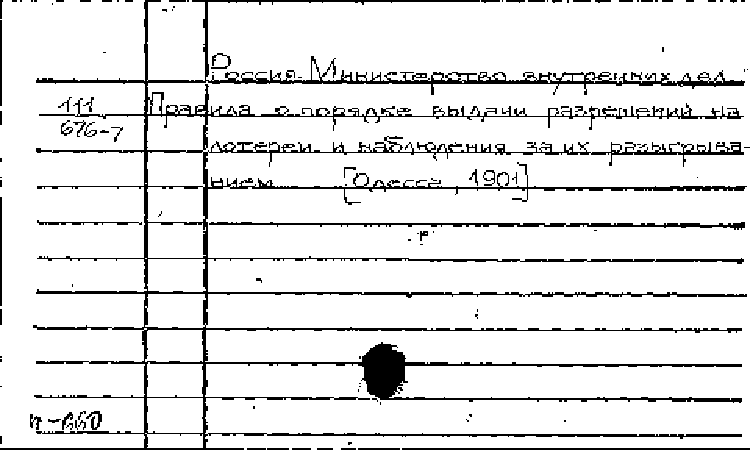 Россия. Министерство внутренних дел.
111
676-7
Правила о порядке выдачи разрешений на
лотереи и наблюдения за их разыгрыва-
нием [Одесса, 1901]